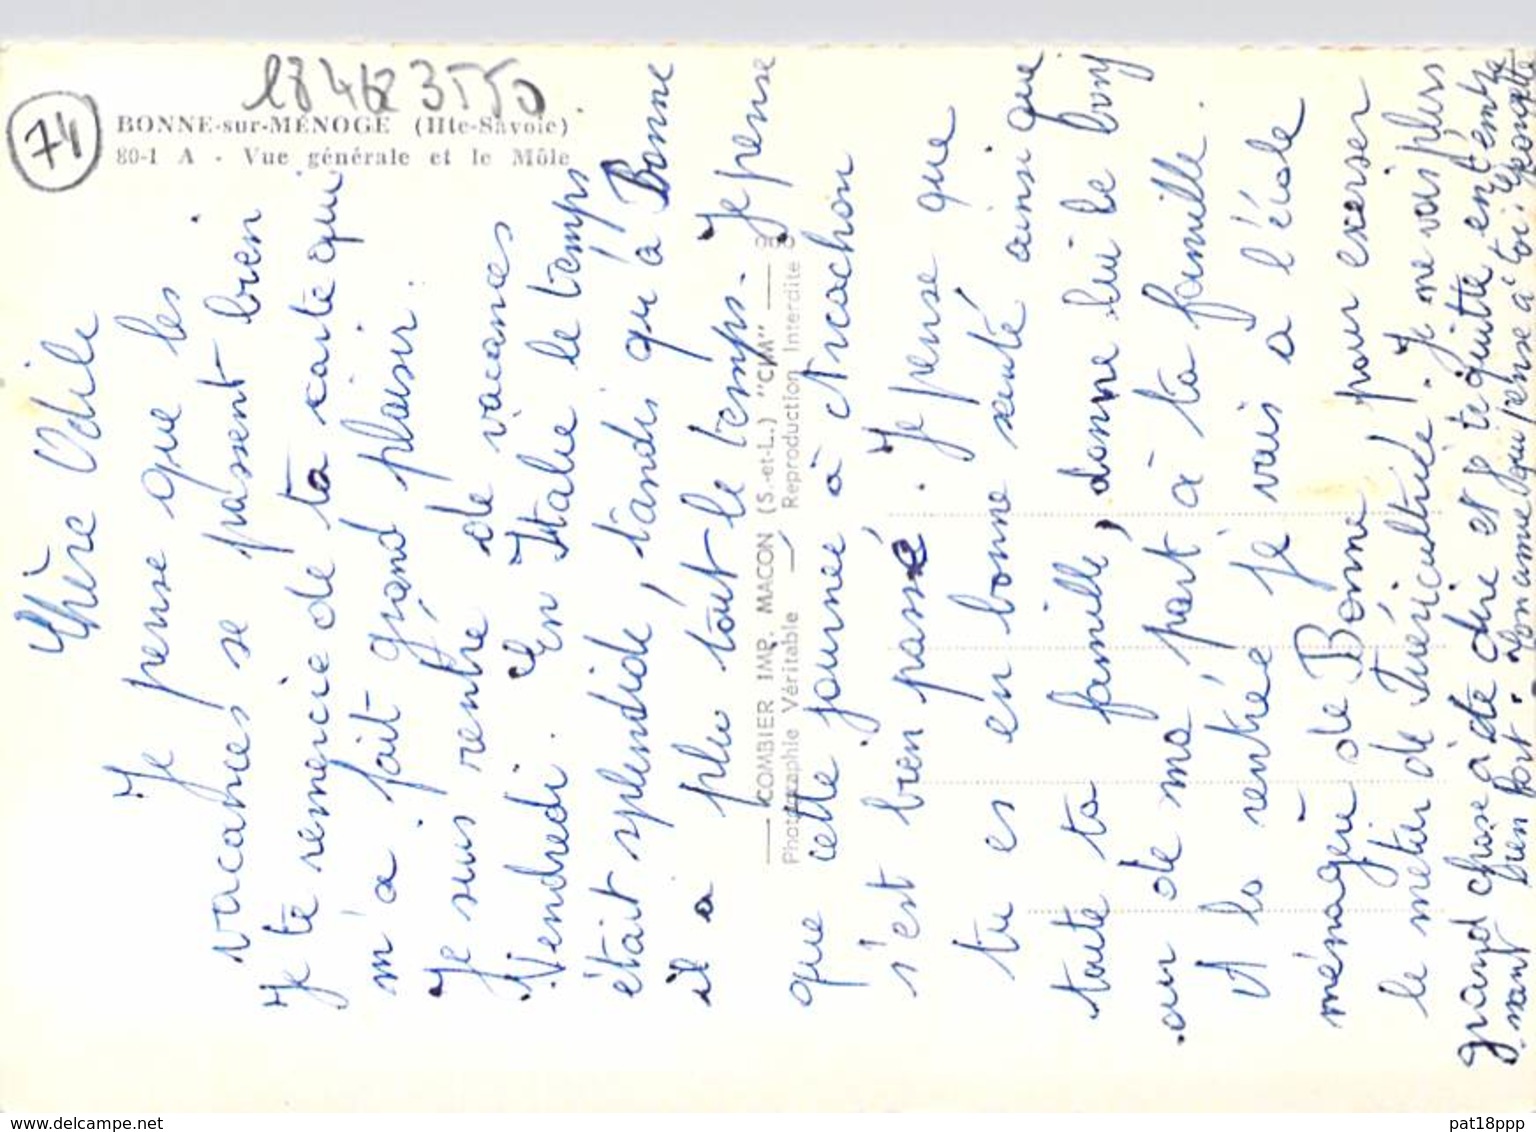 18462 3550
74
BONNE-sur-MENOGE (Hte-Savoie)
80-1 A - Vue générale et le Môle
Chère Odile
Je pense que les
vacances se passent bien
Je te remercie de ta carte qui
m'a fait grand plaisir.
Je suis rentré de vacances
Vendredi. En Italie le temps
était splendide, tandis qu'à Bonne
il a plu tout le temps. Je pense
que cette journée à Arcachon
s'est bien passé. Je pense que
tu es en bonne santé ainsi que
toute ta famille, donne lui le bonj
our de ma part à ta famille.
A la rentrée je vais a l'école
ménagère de Bonne pour exerser
le metier de Puéricultrice. Je ne vois plus
grand chose a te dire et je te quitte en t'emb
rassant bien fort. Ton amie qui pense à toi.
COMBIER IMP. MACON (S.-et-L.) "CIM"
Photographie Véritable - Reproduction Interdite
delcampe.net
pat18ppp